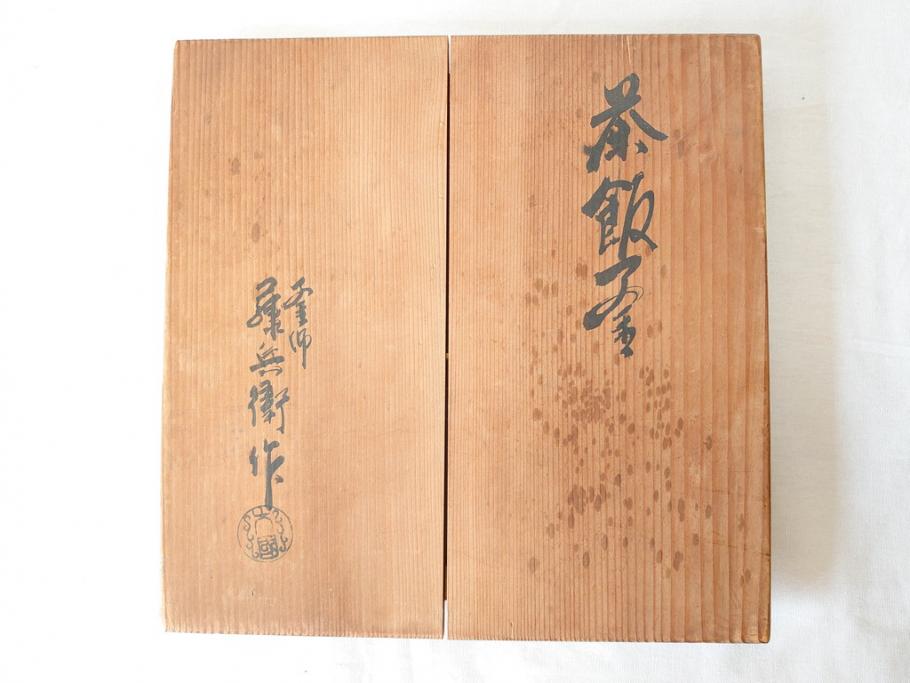 茶飯釜
釜師
藤兵衛作
大國